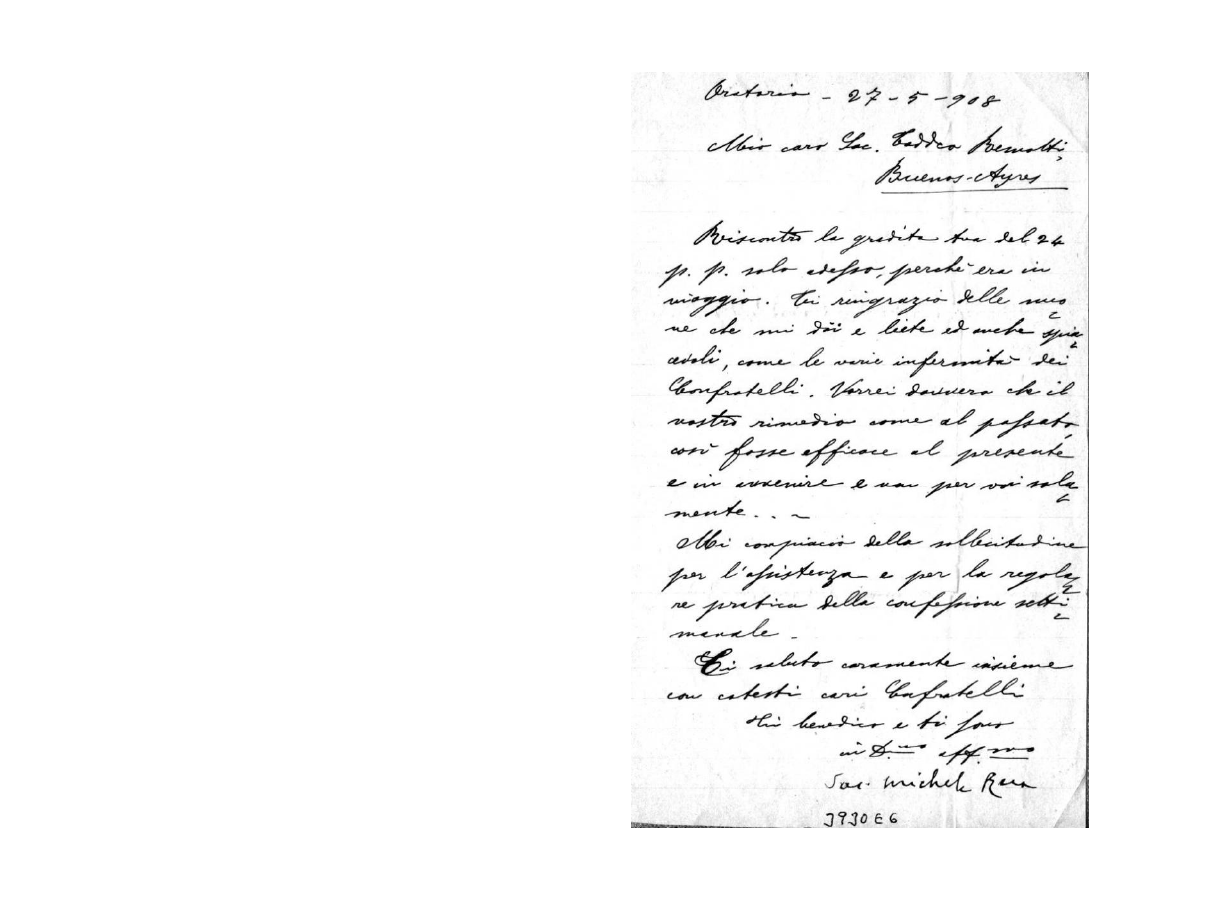 Oratorio - 27 - 5 - 908
Mio caro Sac. Taddeo Remotti,
Buenos-Ayres
Riscontro la gradita tua del 24
p. p. solo adesso, perchè era in
viaggio. Ti ringrazio delle nuo
ve che mi dài e liete ed anche spia
cevoli, come le varie infermità dei
Confratelli. Vorrei davvero che il
vostro rimedio come al passato,
così fosse efficace al presente
e in avvenire e non per voi sola
mente. . . ~
Mi compiaccio della sollecitudine
per l'assistenza e per la regola
re pratica della confessione setti
manale.
Ti saluto caramente insieme
con cotesti cari Confratelli
benedico e ti sono
in D.no aff.mo
Sac. Michele Rua
3930E6